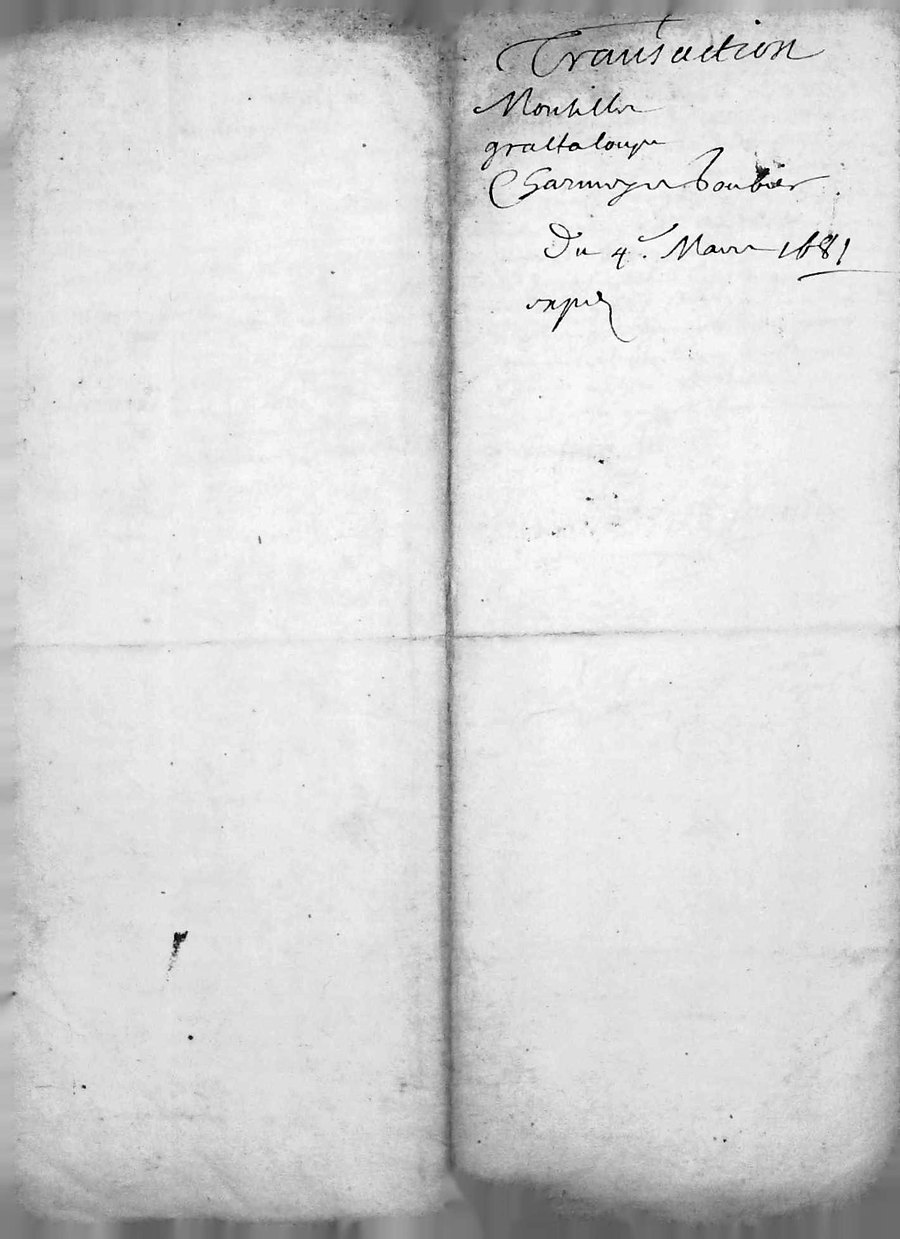 Transaction
Montillie
grattaloupe
Charmoye boubier
Du 4e. Mars 1681
expie